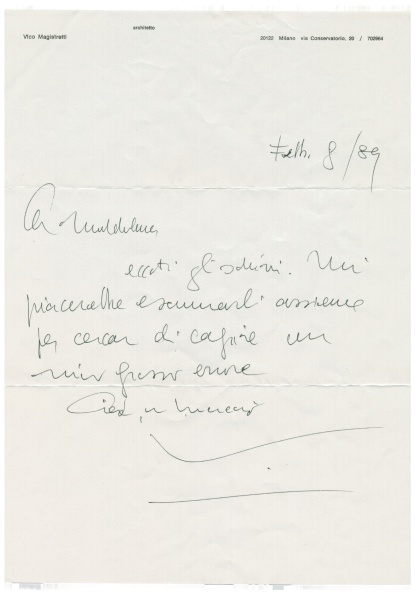 architetto
Vico Magistretti
20122 Milano via Conservatorio, 20 / 702964
Febb. 8/89
eccoti gli schizzi. Mi
piacerebbe esaminarli assieme
per cercar di capire un
mio grosso errore
Ciao,